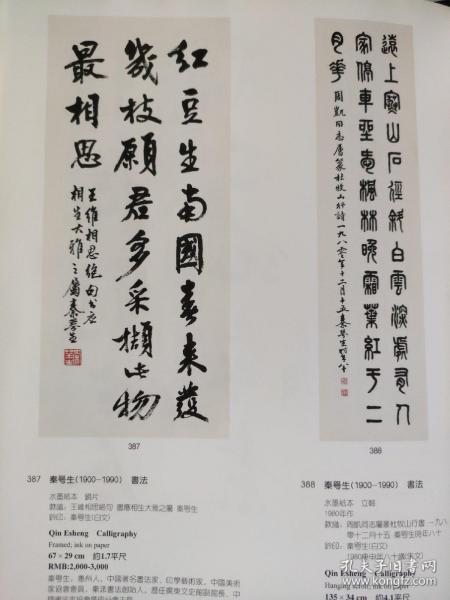 紅豆生南國春來發
幾枝願君多采擷此物
最相思
王維相思絕句書應
相生大雅之屬秦咢生
387
遠上寒山石徑斜白雲深處有人
家停車坐愛楓林晚霜葉紅于二
月華
周凱同志屬篆杜牧山行詩一九八〇年十二月十五秦咢生時年八十
388
387 秦咢生(1900-1990) 書法
水墨紙本 鏡片
款識：王維相思絕句 書應相生大雅之屬 秦咢生
鈐印：秦咢生(白文)
Qin Esheng Calligraphy
Framed; ink on paper
67 × 29 cm 約1.7平尺
RMB:2,000-3,000
秦咢生，惠州人，中國著名書法家、印學藝術家，中國美術
388 秦咢生(1900-1990) 書法
水墨紙本 立軸
1980年作
款識：周凱同志屬篆杜牧山行詩 一九八
〇年十二月十五 秦咢生時年八十
鈐印：秦咢生(白文)
Qin Esheng Calligraphy
Hanging scroll; ink on paper
135 × 34 cm 約4.1平尺
孔夫子旧书网